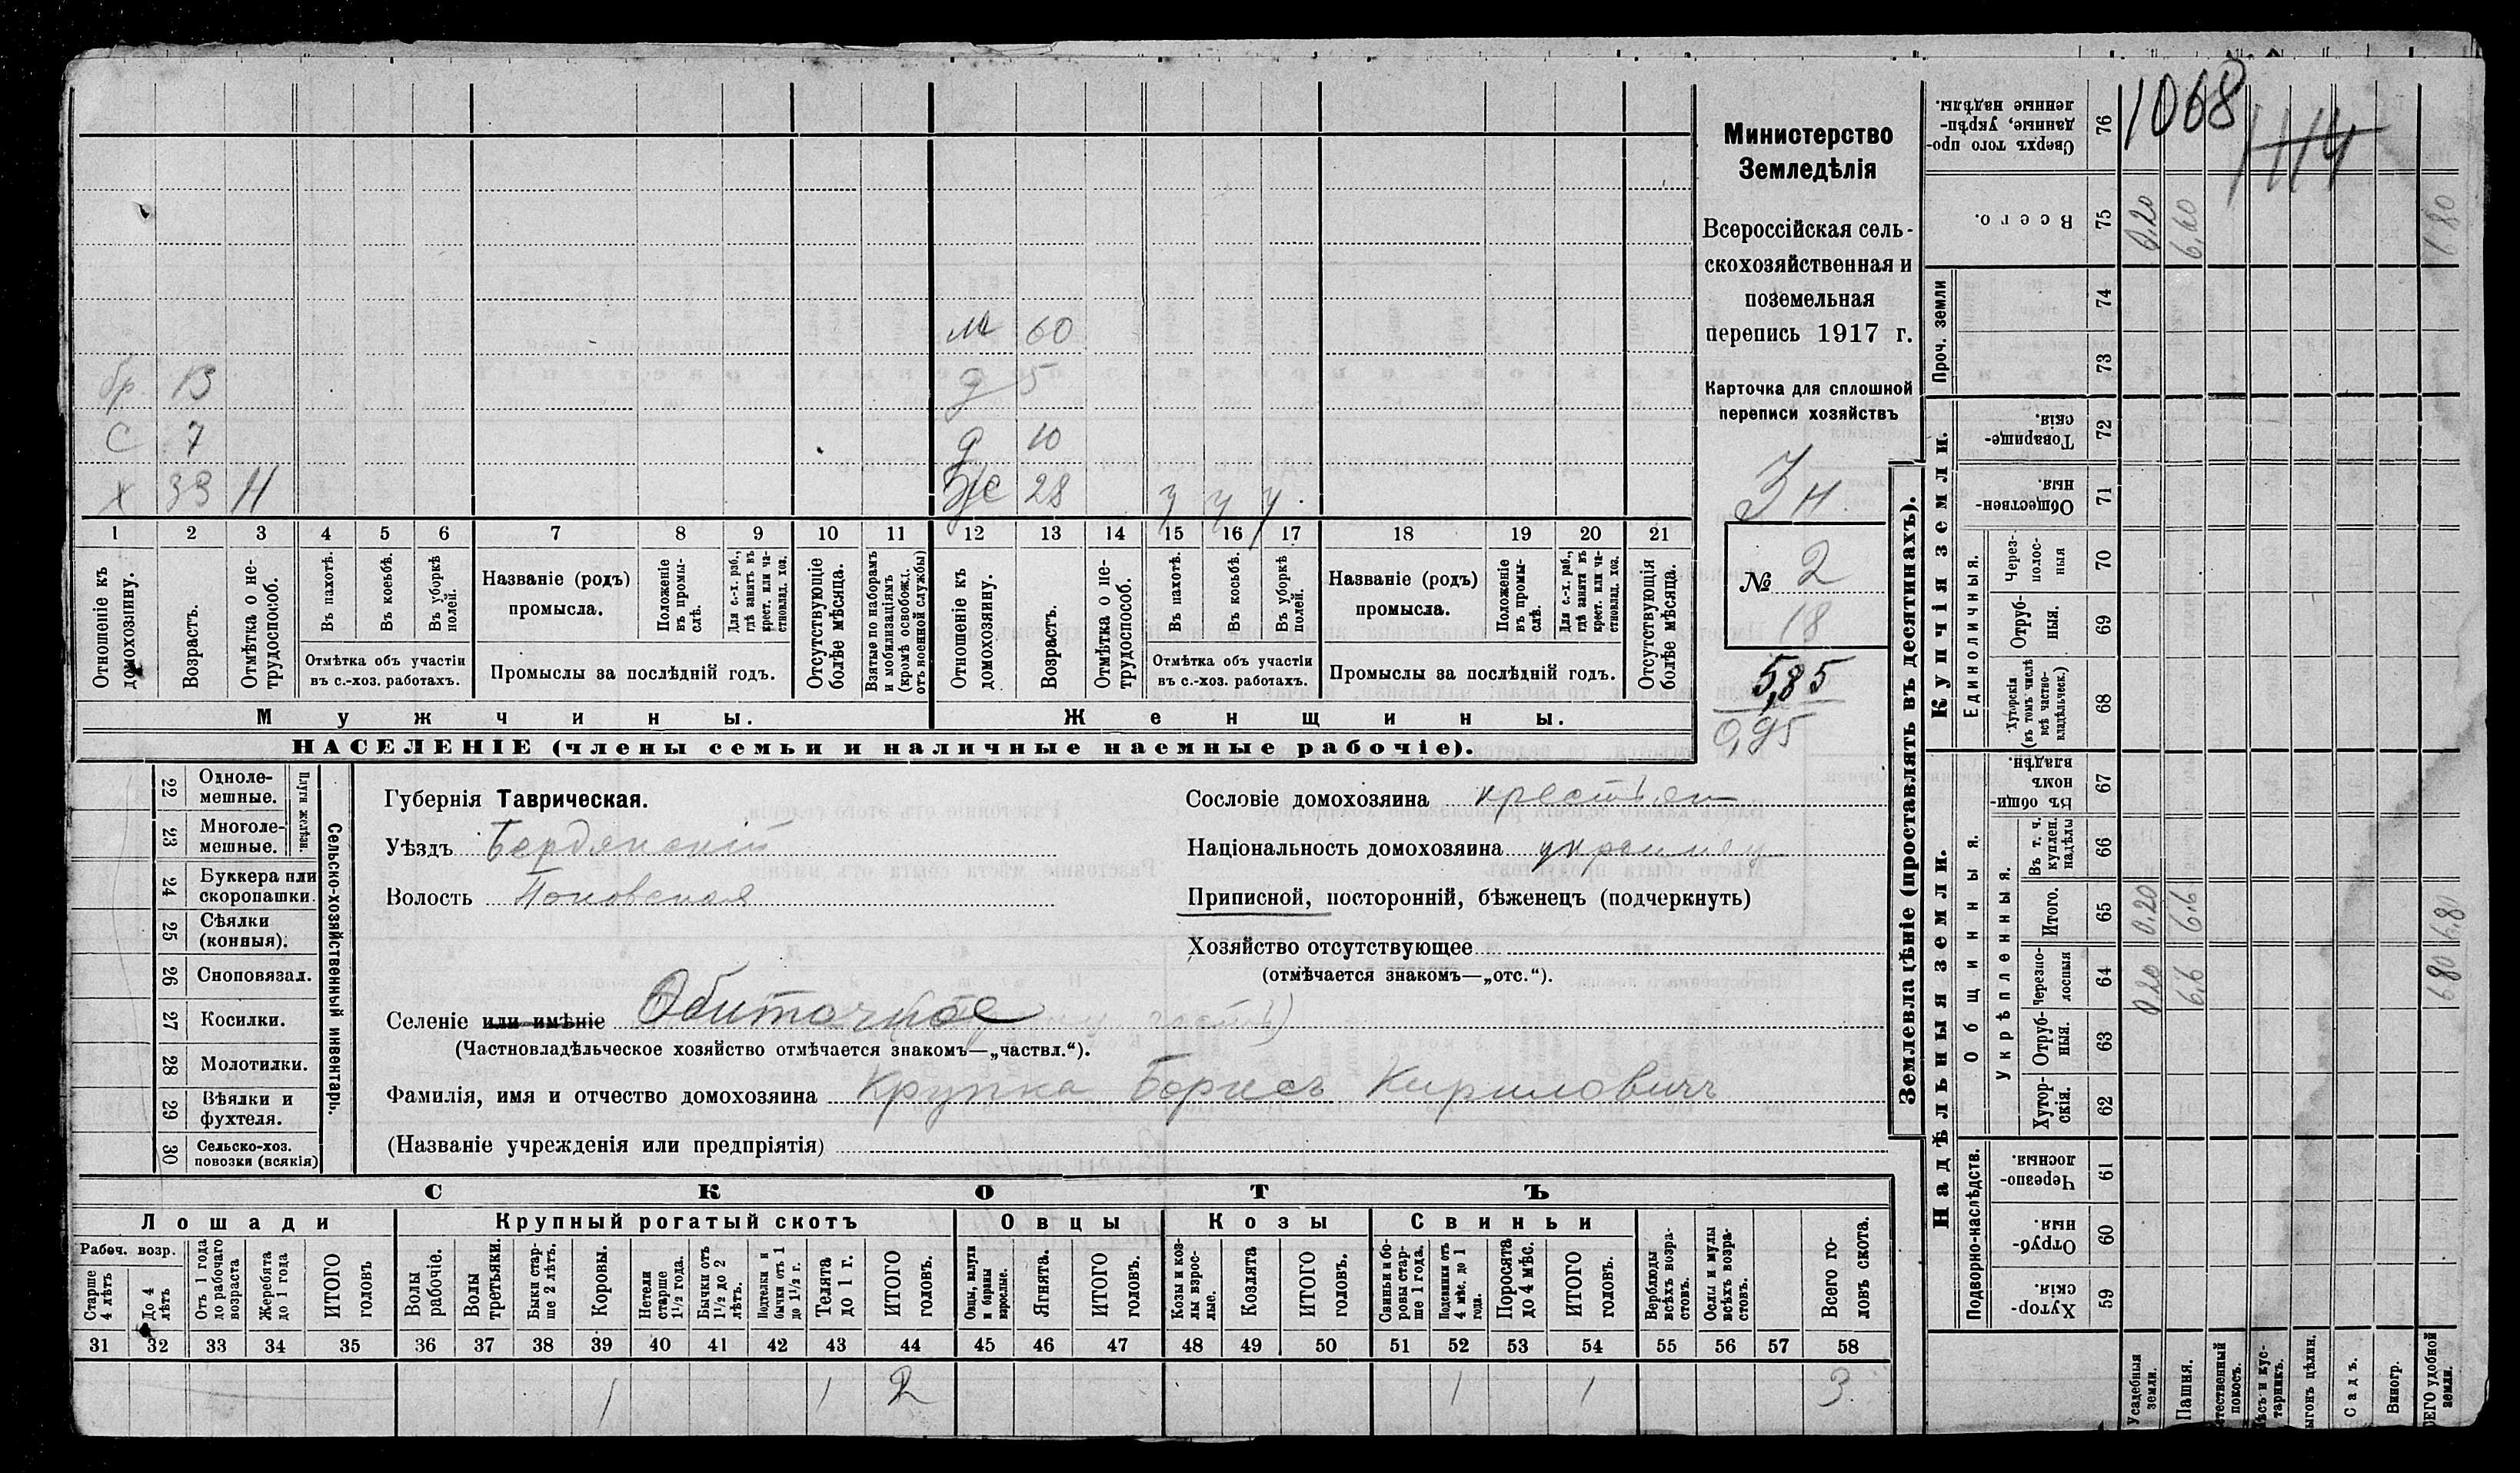 1068
1114
Министерство
Земледѣлія
Всероссійская сель-
скохозяйственная и
поземельная
перепись 1917 г.
Карточка для сплошной
переписи хозяйствъ
3 н.
№ 2
18
5,85
0,95
м 60
бр. 13 д 5
с 7 д 10
х 33 Н Ж 28 у у у
1 2 3 4 5 6 7 8 9 10 11 12 13 14 15 16 17 18 19 20 21
Отношеніе къ домохозяину.
Возрастъ.
Отмѣтка о не-трудоспособ.
Въ пахотѣ.
Въ косьбѣ.
Въ уборкѣ полей.
Отмѣтка объ участіи
въ с.-хоз. работахъ.
Названіе (родъ)
промысла.
Положеніе въ промы-слѣ.
Для с.-х. раб., гдѣ занятъ въ крест. или ча-стновлад. хоз.
Промыслы за послѣдній годъ.
Отсутствующіе болѣе мѣсяца.
Взятые по наборамъ и мобилизаціямъ (кромѣ освобожд. отъ военной службы)
Отношеніе къ домохозяину.
Возрастъ.
Отмѣтка о не-трудоспособ.
Въ пахотѣ.
Въ косьбѣ.
Въ уборкѣ полей.
Отмѣтка объ участіи
въ с.-хоз. работахъ.
Названіе (родъ)
промысла.
Положеніе въ промы-слѣ.
Для с.-х. раб., гдѣ занята въ крест. или ча-стновлад. хоз.
Промыслы за послѣдній годъ.
Отсутствующія болѣе мѣсяца.
Мужчины.
Женщины.
НАСЕЛЕНІЕ (члены семьи и наличные наемные рабочіе).
22 Одноле-мешные.
23 Многоле-мешные.
Плуги желѣзн.
24 Буккера или скоропашки.
25 Сѣялки (конныя).
26 Сноповязал.
27 Косилки.
28 Молотилки.
29 Вѣялки и фухтеля.
30 Сельско-хоз. повозки (всякія)
Сельско-хозяйственный инвентарь.
Губернія Таврическая.
Уѣздъ Бердянскій
Волость Поповская
Сословіе домохозяина крестьян
Національность домохозяина украинец
Приписной, посторонній, бѣженецъ (подчеркнуть)
Хозяйство отсутствующее
(отмѣчается знакомъ—„отс.“).
Селеніе или имѣніе Обиточное
(Частновладѣльческое хозяйство отмѣчается знакомъ—„частвл.“).
Фамилія, имя и отчество домохозяина Крупка Борисъ Кириловичъ
(Названіе учрежденія или предпріятія)
СКОТЪ
Лошади
Крупный рогатый скотъ
Овцы
Козы
Свиньи
Рабоч. возр.
Старше 4 лѣтъ
До 4 лѣтъ
Отъ 1 года до рабочаго возраста
Жеребята до 1 года
ИТОГО головъ
Волы рабочіе.
Волы третьяки.
Быки стар-ше 2 лѣтъ.
Коровы.
Нетели старше 1½ года.
Бычки отъ 1½ до 2 лѣтъ.
Подтелки и бычки отъ 1 до 1½ г.
Телята до 1 г.
ИТОГО головъ.
Овцы, валухи и бараны взрослые.
Ягнята.
ИТОГО головъ.
Козы и коз-лы взрос-лые.
Козлята
ИТОГО головъ.
Свиньи и бо-ровы стар-ше 1 года.
Подсвинки отъ 4 мѣс. до 1 года.
Поросята до 4 мѣс.
ИТОГО головъ.
Верблюды всѣхъ возра-стовъ.
Ослы и мулы всѣхъ возра-стовъ.
Всего го-ловъ скота.
31 32 33 34 35 36 37 38 39 40 41 42 43 44 45 46 47 48 49 50 51 52 53 54 55 56 57 58
1 1 2 1 1 3
Землевладѣніе (проставлять въ десятинахъ).
Купчія земли.
Надѣльныя земли.
Сверхъ того про-данные, укрѣп-ленные надѣлы. 76
Всего. 75 0,20 6,60 6,80
Проч. земли
74
73
Товарище-скія. 72
Обществен-ныя. 71
Единоличныя.
Через-полос-ныя 70
Отруб-ныя. 69
Хуторскія (въ томъ числѣ всѣ частно-владѣльческ.) 68
Общинныя.
Въ общин-номъ владѣн. 67
Укрѣпленныя.
Въ т. ч. куплен. надѣлы 66
Итого. 65 0,20 6,6 6,80
Черезпо-лосныя 64 0,20 6,6 6,80
Отруб-ныя. 63
Хутор-скія. 62
Подворно-наслѣдств.
Черезпо-лосныя. 61
Отруб-ныя 60
Хутор-скія. 59
Усадебныя земли.
Пашня.
тественный покосъ.
ѣсъ и кус-тарникъ.
ыгонъ цѣлин.
Садъ.
Виногр.
СЕГО удобной земли.